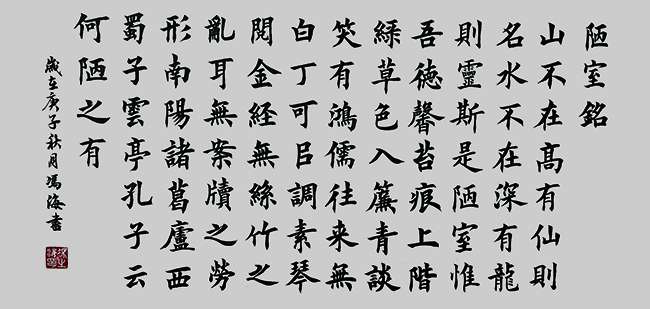 陋室銘
山不在髙有仙則
名水不在深有龍
則靈斯是陋室惟
吾徳馨苔痕上階
緑草色入簾青談
笑有鴻儒往来無
白丁可㠯調素琴
閱金経無絲竹之
亂耳無案牘之勞
形南陽諸葛廬西
蜀子雲亭孔子云
何陋之有
歲在庚子秋月馮海書